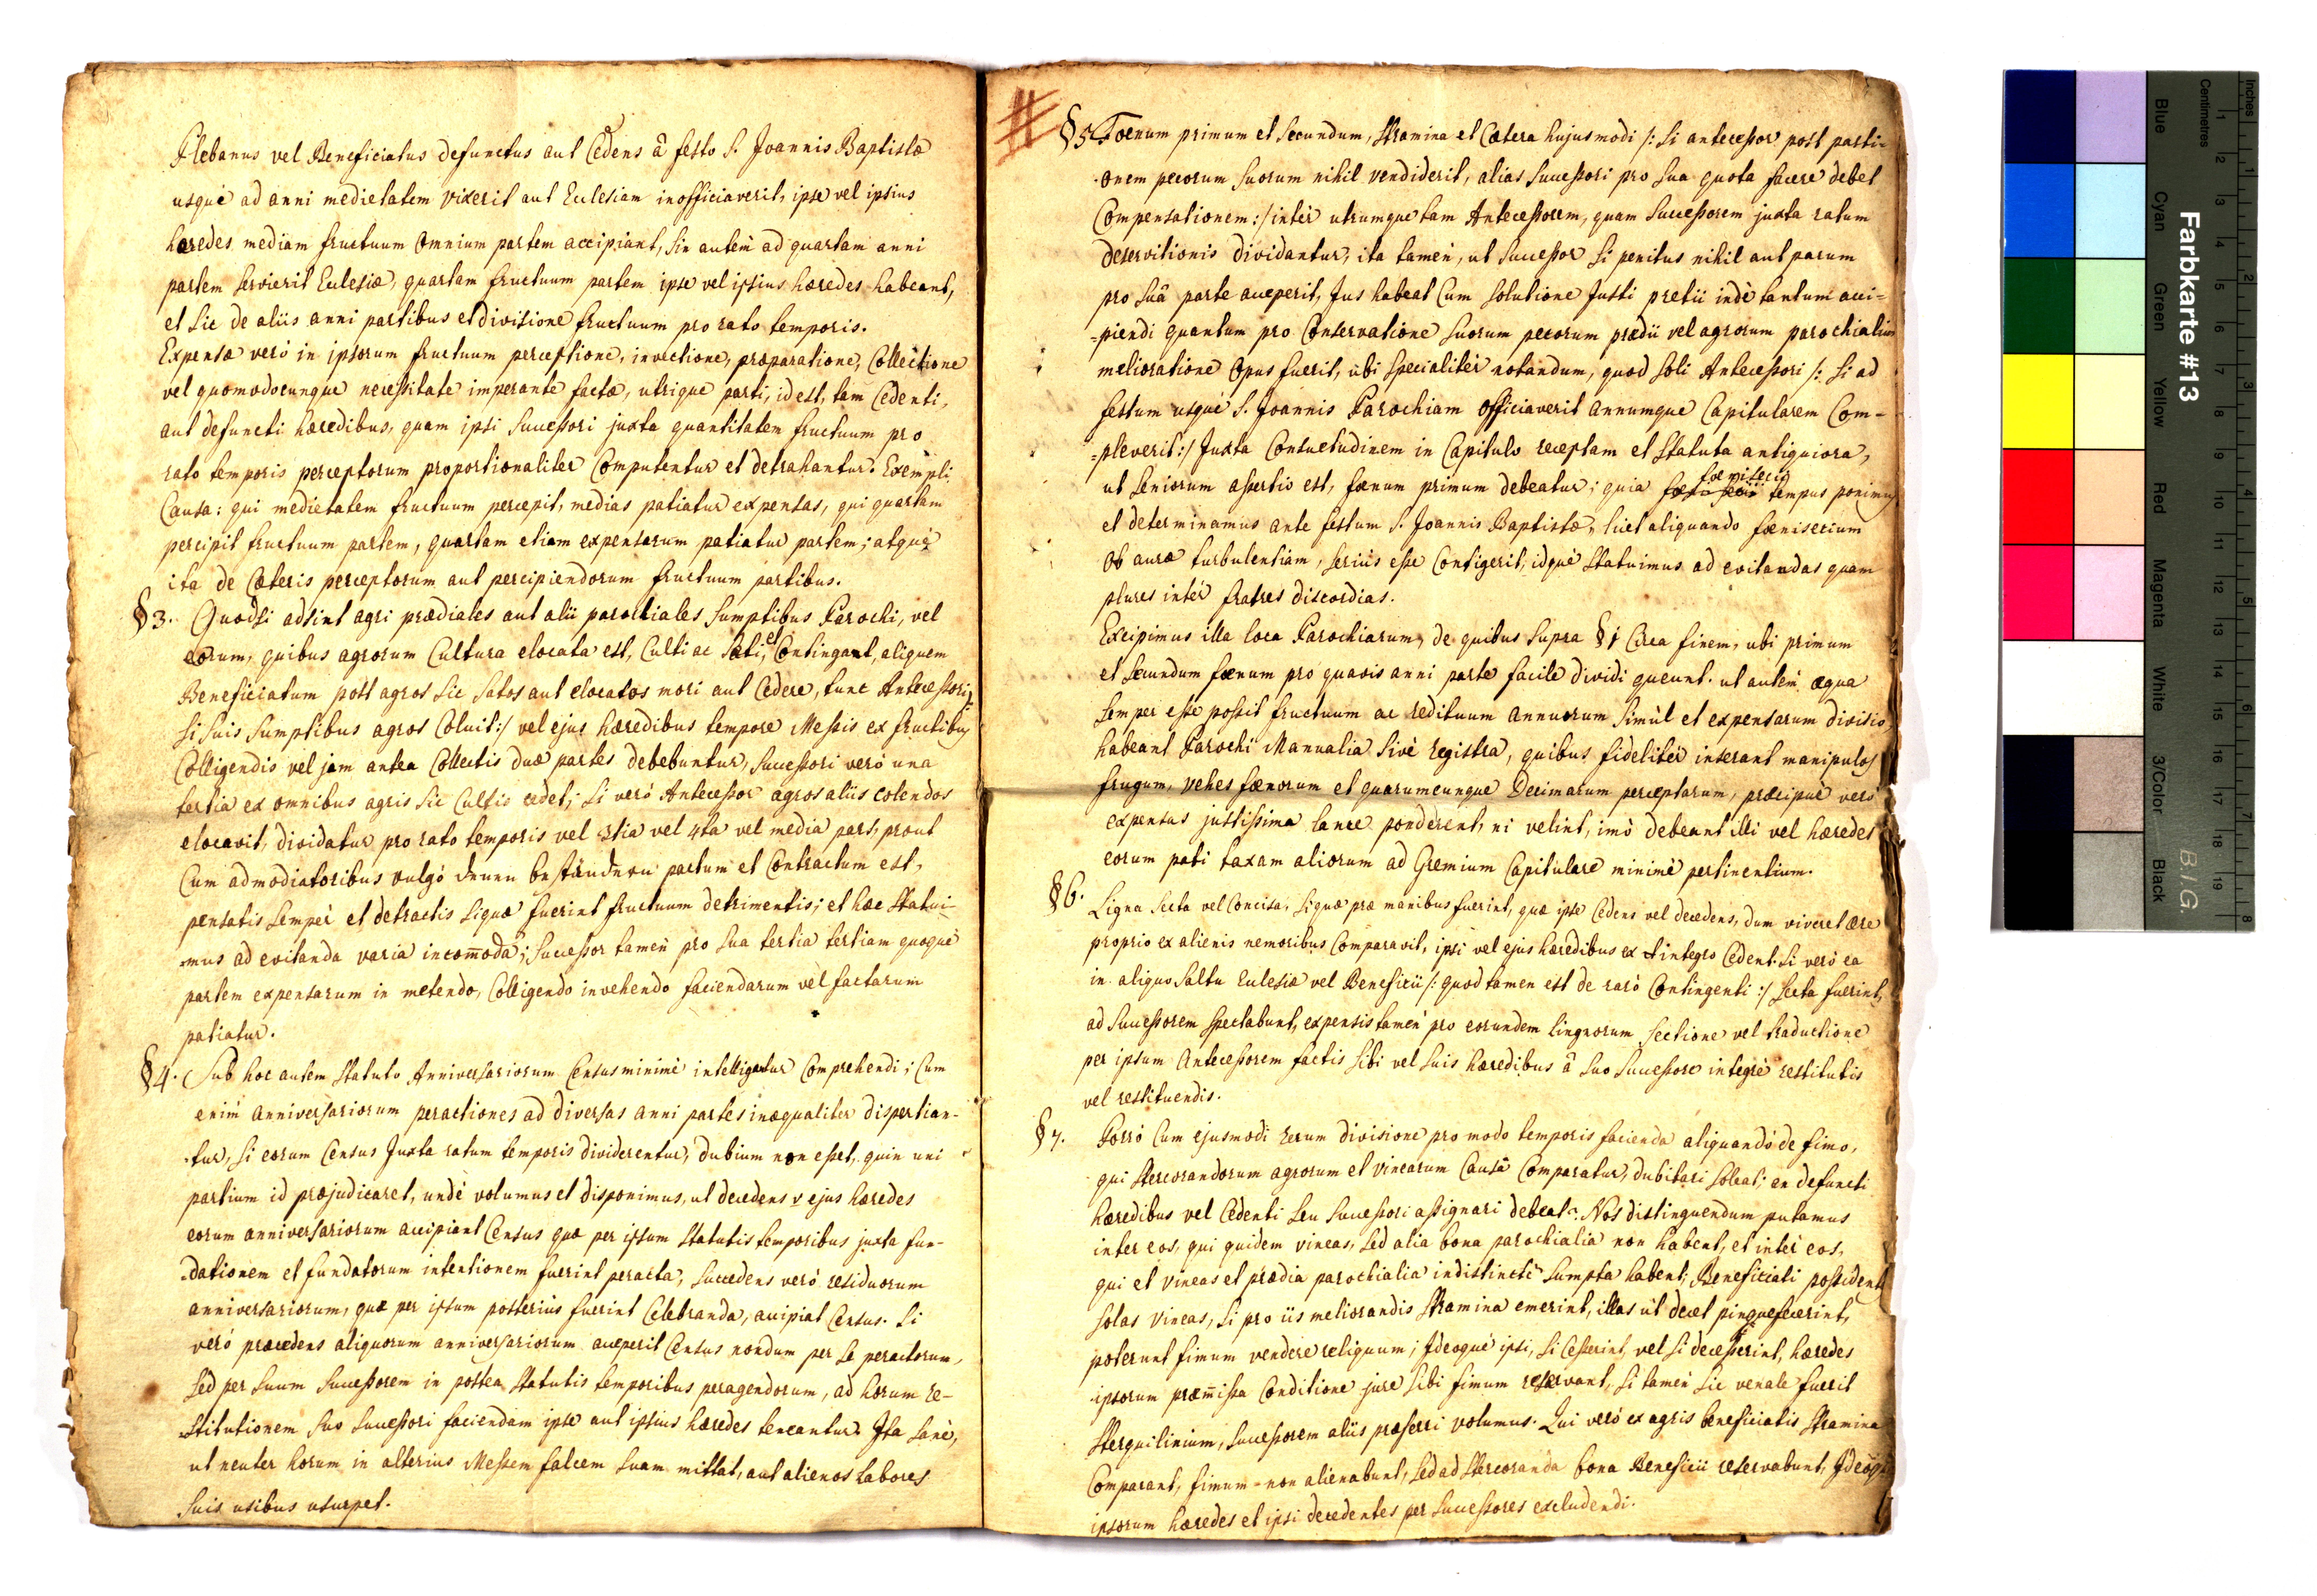 Plebanus vel Beneficiatus defunctus aut Cedens â festo S. Joannis Baptistæ
usquè ad anni medietatem vixerit aut Ecclesiam inofficiaverit, ipse vel ipsius
hæredes mediam fructuum omnium partem accipiant, sin autèm ad quartam anni
partem servierit Ecclesiæ, quartam fructuum partem ipse vel ipsius hæredes habeant,
et sic de aliis anni partibus et divisione fructuum pro rato temporis.
Expensæ verò in ipsorum fructuum perceptione, invectione, præparatione, Collectione
vel quomodocunque necessitate imperante factæ, utrique parti, id est, tam Cedenti,
aut defuncti hæredibus, quam ipsi Successori juxta quantitatem fructuum pro
rato temporis perceptorum proportionaliter Computentur et detrahantur. Exempli
Causa: qui medietatem fructuum percepit, medias patiatur expensas, qui quartam
percipit fructuum partem, quartam etiam expensarum patiatur partem; atquè
ita de Cæteris perceptorum aut percipiendorum fructuum partibus.
§ 3. Quodsi adsint agri prædiales aut alii parochiales sumptibus Parochi, vel
eorum, quibus agrorum Cultura elocata est, Culti ac sati, et Contingat, aliquem
Beneficiatum post agros sic satos aut elocatos mori aut Cedere, tunc Antecessori /:
si suis sumptibus agros Coluit :/ vel ejus hæredibus tempore Messis ex fructibus
Colligendis vel jam antea Collectis duæ partes debebuntur, Successori verò una
tertia ex omnibus agris sic Cultis cedet; si verò Antecessor agros aliis colendos
elocavit, dividatur pro rato temporis vel 3tia vel 4ta vel media pars, prout
Cum admodiatoribus vulgò denen beständern pactum et Contractum est,
pensatis sempèr et detractis siquæ fuerint fructuum detrimentis; et hæc Statui-
-mus ad evitanda varia incom̄oda; Successor tamèn pro sua tertia tertiam quoquè
partem expensarum in metendo, Colligendo invehendo faciendarum vel factarum
patiatur.
§ 4. Sub hoc autem Statuto Anniversariorum Census minimè intelligantur Comprehendi; Cum
enim anniversariorum peractiones ad diversas anni partes inæqualiter dispertian-
-tur, si eorum Census Juxta ratum temporis dividerentur, dubium non esset, quin uni
partium id præjudicaret, undè volumus et disponimus, ut decedens v ejus hæredes
eorum anniversariorum accipiant Census quæ per ipsum statutis temporibus juxta fun-
-dationem et fundatorum intentionem fuerint peracta, succedens verò residuorum
anniversariorum, quæ per ipsum posterius fuerint Celebranda, accipiat Census. Si
verò præcedens aliquorum anniversariorum acceperit Census nondum per se peractorum,
sed per suum Successorem in postea statutis temporibus peragendorum, ad horum re-
-stitutionem suo successori faciendam ipse aut ipsius hæredes teneantur. Ita sanè,
ut neuter horum in alterius Messem falcem suam mittat, aut alienos labores
suis usibus usurpet.
§ 5. Foenum primum et secundum, stramina et Cætera hujusmodi /: si antecessor post parti-
-onem pecorum suorum nihil vendiderit, alias successori pro sua quota facere debet
Compensationem :/ intèr utrumque tam Antecessorem, quam Successorem juxta ratum
deservitionis dividantur, ita tamèn, ut successor si penitus nihil aut parum
pro suâ parte acceperit, Jus habeat Cum solutione Justi pretii indè tantum acci-
-piendi quantum pro Conservatione suorum pecorum prædii vel agrorum parochialium
melioratione opus fuerit, ubi specialitèr notandum, quod soli Antecessori /: si ad
festum usquè S. Joannis Parochiam officiaverit annumque Capitularem Com-
-pleverit :/ Juxta Consuetudinem in Capitulo receptam et Statuta antiquiora,
ut seniorum assertio est, fænum primum debeatur; quia fænisecii tempus ponimus
et determinamus ante festum S. Joannis Baptistæ, licet aliquando fænisecium
ob auræ turbulentiam, seriùs esse Contigerit, idquè statuimus ad evitandas quam
plures intèr fratres discordias.
Excipimus illa loca Parochiarum, de quibus supra § 1 Circa finem, ubi primum
et secundum fænum pro quavis anni parte facile dividi queunt. ut autèm æqua
semper esse possit fructuum ac redituum annuorum simùl et expensarum divisio,
habeant Parochi Manualia sivè registra, quibus fidelitèr inserant manipulos
frugum, vehes fænorum et quarumcunque Decimarum perceptarum, præcipuè verò
expensas justissima lance ponderent, ni velint, imò debeant illi vel hæredes
eorum pati taxam aliorum ad Gremium Capitulare minimè pertinentium.
§ 6. Ligna secta vel Concisa, siquæ præ manibus fuerint, quæ ipse Cedens vel decedens, dum viveret ære
proprio ex alienis nemoribus Comparavit, ipsi vel ejus hæredibus ex integro Cedent. Si verò ea
in aliquo saltu Ecclesiæ vel Beneficii /: quod tamen est de rarò Contingenti :/ secta fuerint,
ad successorem spectabunt, expensis tamèn pro eorundem lignorum sectione vel traductione
per ipsum Antecessorem factis sibi vel suis hæredibus â suo successore integrè restitutis
vel restituendis.
§ 7. Porrò Cum ejusmodi rerum divisione pro modo temporis facienda aliquandò de fimo,
qui stercorandorum agrorum et vinearum Causâ Comparatur, dubitari soleat; an defuncti
hæredibus vel Cedenti seu successori assignari debeat? Nos distinguendum putamus
inter eos, qui quidem vineas, sed alia bona parochialia non habent, et intèr eos,
qui et vineas et prædia parochialia indistinctè sumpta habent; Beneficiati possidentes
solas vineas, si pro iis meliorandis stramina emerint, illas ùt decet pinguefecerint,
poterunt fimum vendere reliquum; Ideoquè ipsi, si Cesserint, vel si decesserint, hæredes
ipsorum præm̄issa Conditione jure sibi fimum reservant, si tamèn sic venale fuerit
sterquilinium, successorem aliis præferri volumus. Qui verò ex agris beneficiatis stramina
Comparant, fimum non alienabunt, sed ad stercoranda bona Beneficii reservabunt, Ideoque
ipsorum hæredes et ipsi decedentes per successores excludendi.
Farbkarte #13
Inches
Centimetres
1 2 3 4 5 6 7 8 9 10 11 12 13 14 15 16 17 18 19
1 2 3 4 5 6 7 8
Blue
Cyan
Green
Yellow
Red
Magenta
White
3/Color
Black
B.I.G.